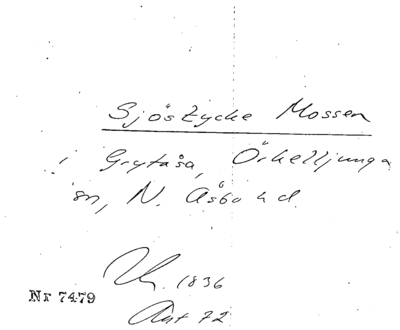 Sjöstycke Mossen
i Grytåsa, Örkelljunga
sn, N. Åsbo hd.
1836
Nr 7479
Akt 72